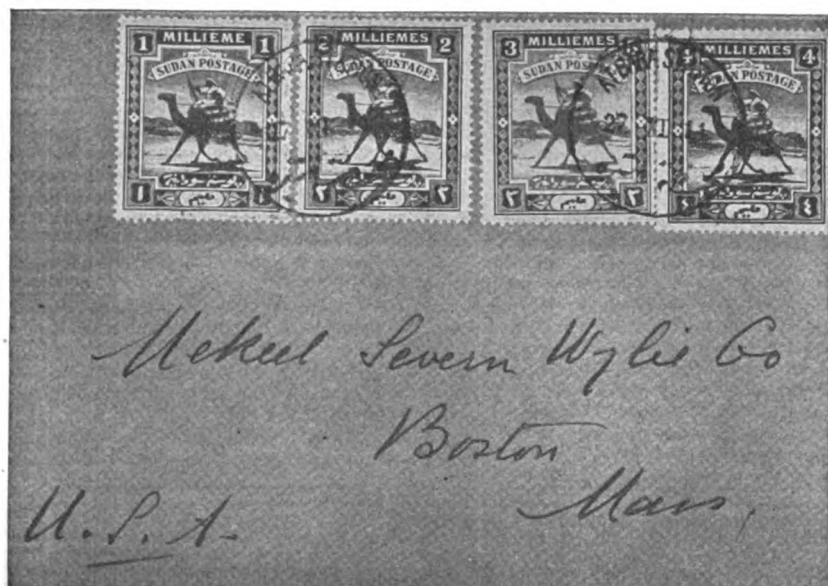 1 MILLIEME 1
SUDAN POSTAGE
١ ١
2 MILLIEMES 2
SUDAN POSTAGE
٢ ٢
3 MILLIEMES 3
SUDAN POSTAGE
٣ ٣
4 MILLIEMES 4
SUDAN POSTAGE
٤ ٤
Mekeel Severn Wylie Co
Boston
Mass,
U.S.A.